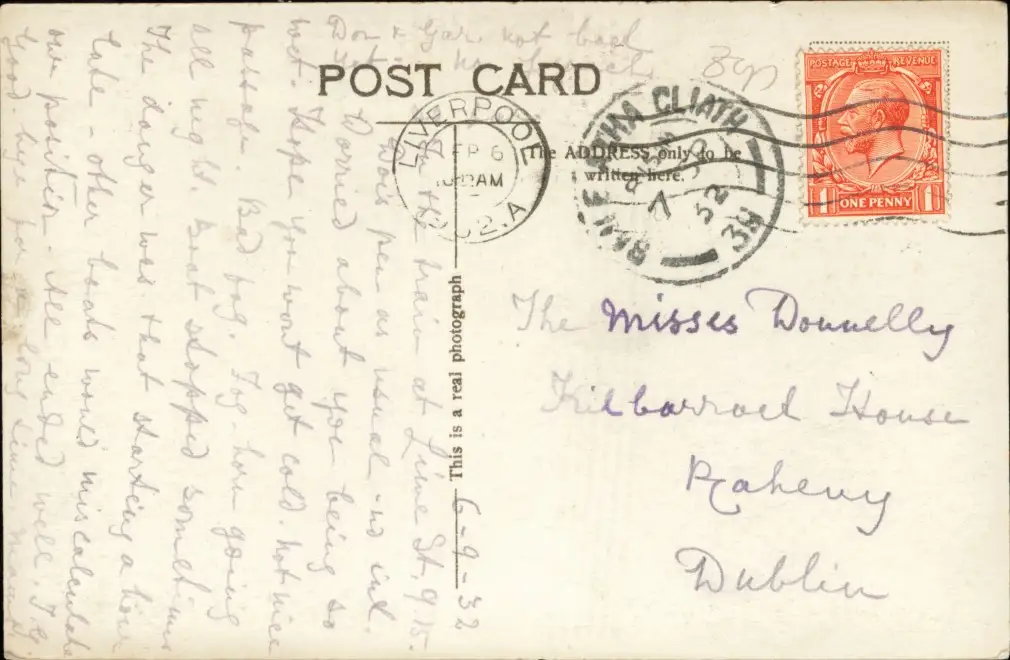 POST CARD
The ADDRESS only to be
written here.
LIVERPOOL
6
AM
1932. A
BAILE ATHA CLIATH
7
32
POSTAGE REVENUE
1 ONE PENNY 1
The Misses Donnelly
House
Raheny
Dublin
This is a real photograph
6-9-32
In the train at Lime St. 9.15.
pen as usual - no ink.
Worried about you being so
wet. Hope you wont get cold. Not nice
passage. Bad fog. Fog-horn going
all night. Boat stopped sometimes
The danger was that starting a hour
late - other boats would miscalculate
our position. All ended well. T.G.
Good bye for a long time
not back